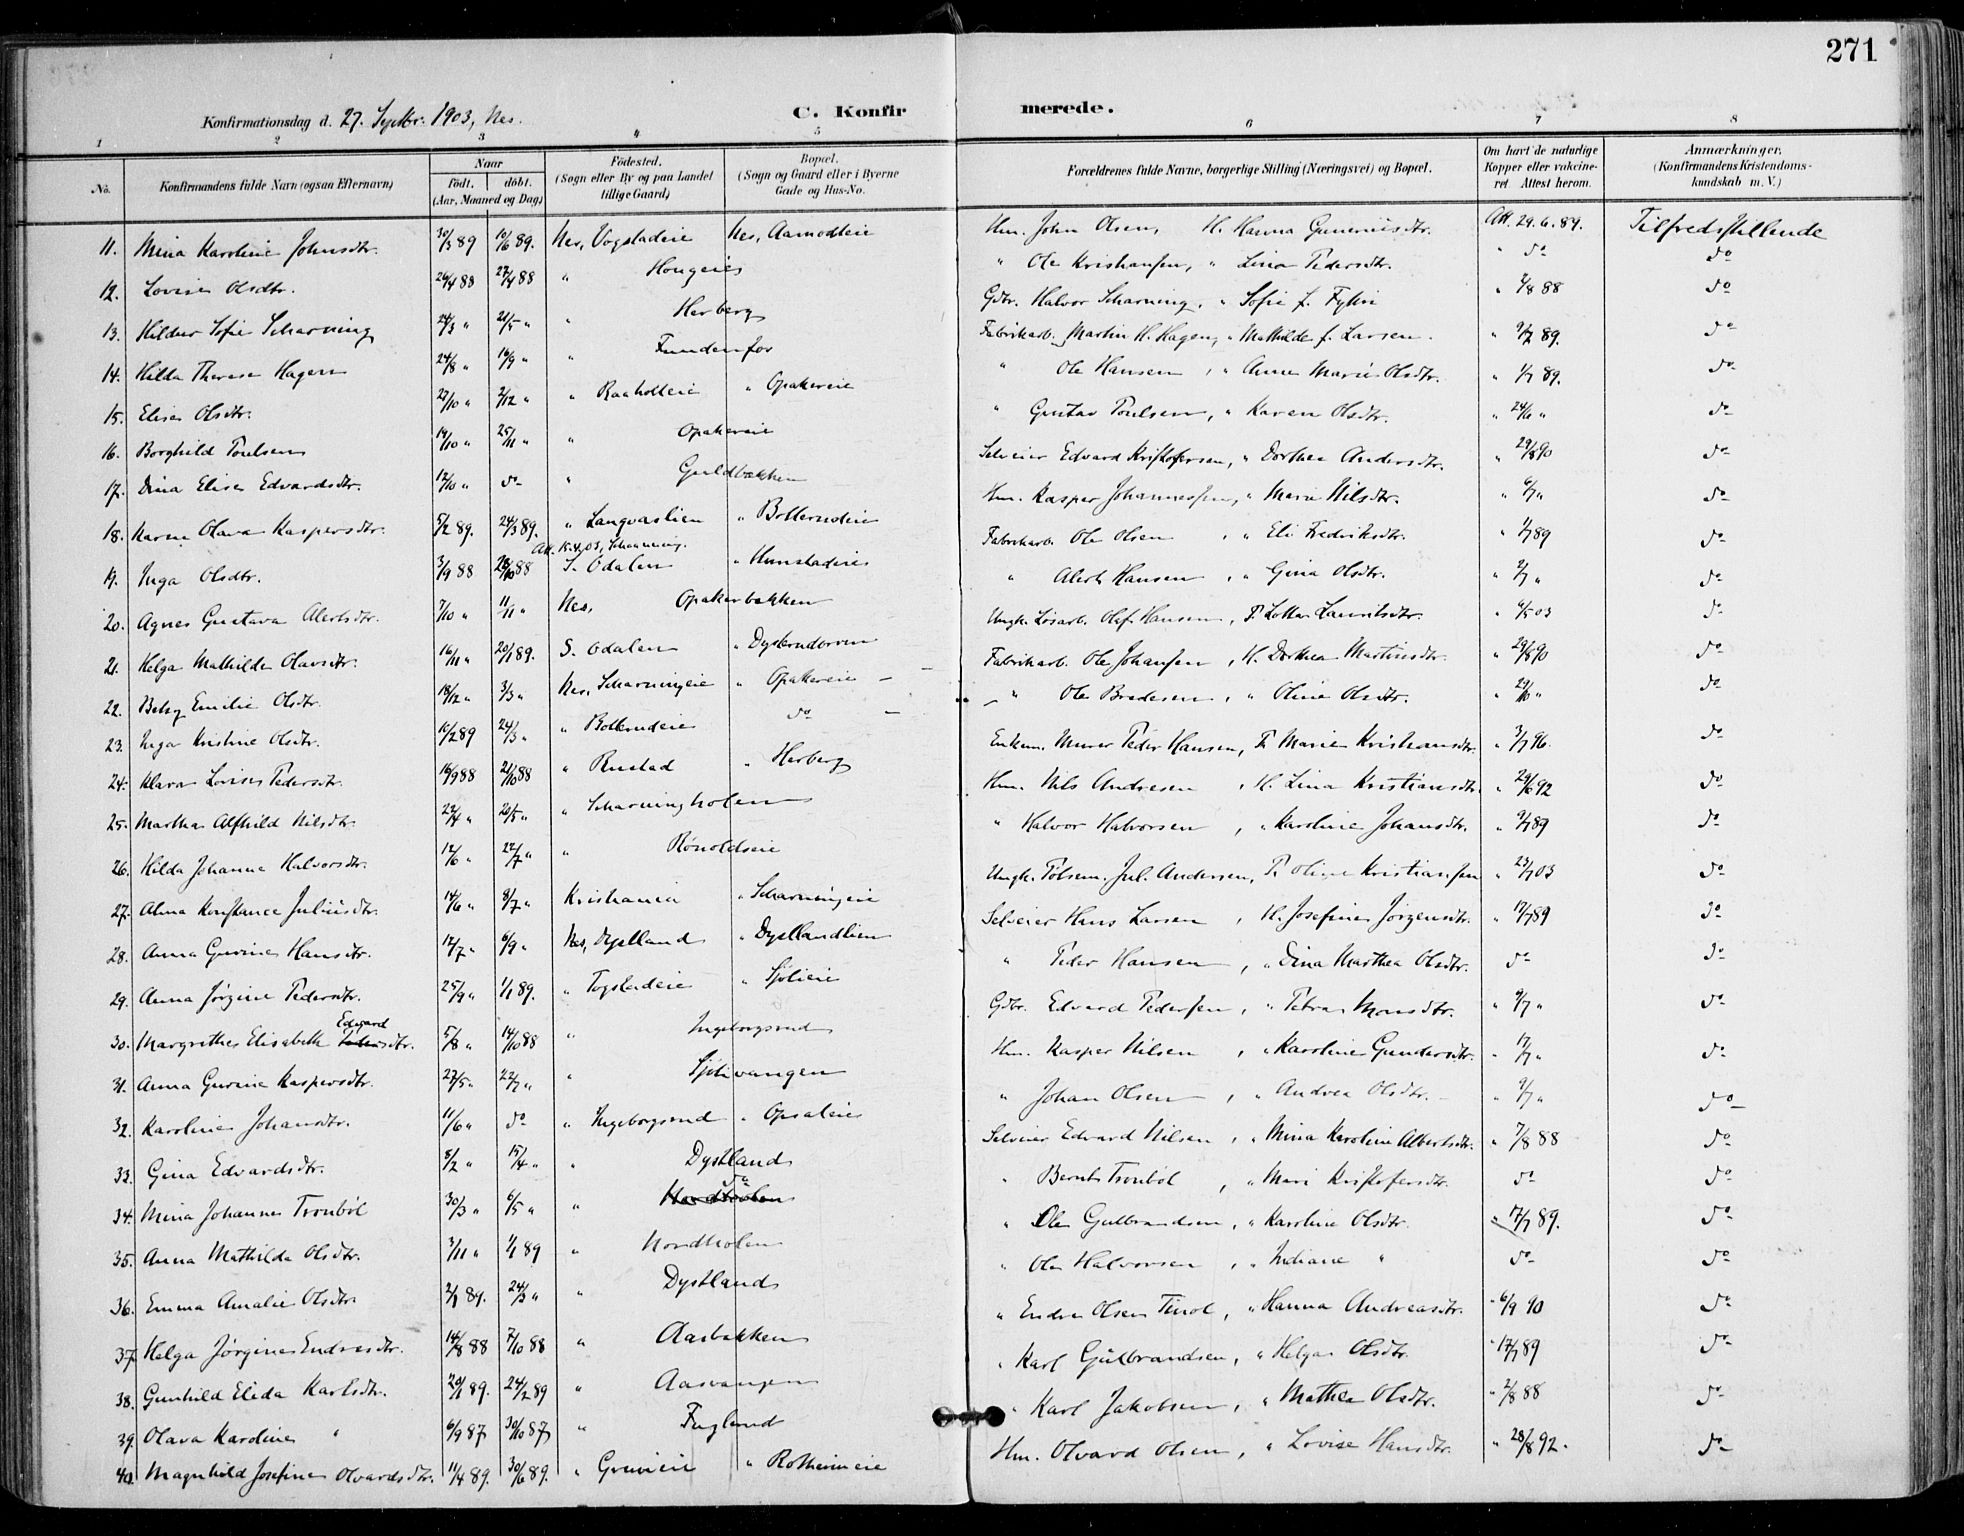 271
Konfirmationsdag d. 27. Septbr. 1903, Nes.
C. Konfirmerede.
1 2 3 4 5 6 7 8
No. | Konfirmandens fulde Navn (ogsaa Efternavn) | Naar født. | døbt. (Aar, Maaned og Dag) | Fødested. (Sogn eller By og paa Landet tillige Gaard) | Bopæl. (Sogn og Gaard eller i Byerne Gade og Hus-No. | Forældrenes fulde Navne, borgerlige Stilling (Næringsvei) og Bopæl. | Om havt de naturlige Kopper eller vakcineret. Attest herom. | Anmærkninger. (Konfirmandens Kristendomskundskab m. V.)
11. Mina Karoline Johnsdtr. 30/3 89 10/6 89. Nes, Vogstadeie Nes, Aamodteie Hm. John Olsen, H. Hanna Guneriusdtr. Att. 29.6.89. Tilfredsstillende
12. Lovise Olsdtr. 26/4 88 27/4 88 " Hougeie " Ole Kristiansen, " Lina Pedersdtr. " do do
13. Hildur Sofie Scharning 24/3 " 21/5 " " Herberg Gdbr. Halvor Scharning, " Sofie f. Fyhri " 2/8 88 do
14. Hilda Therese Hagen 24/8 " 16/9 " " Fundenfos Fabrikarb. Martin H. Hagen, " Mathilde f. Larsen. " 9/7 89. do
15. Elise Olsdtr. 27/10 " 2/12 " " Raaholteie " Opakereie " Ole Hansen, " Anne Marie Olsdtr. " 1/7 89. do
16. Borghild Poulsen 14/10 " 25/11 " " Opakereie " Gustav Poulsen, " Karen Olsdtr. " 24/6 " do
17. Dina Elise Edvardsdtr. 12/10 " do " Guldbakken Selveier Edvard Kristofersen, " Dorthea Andersdtr. " 29/8 90 do
18. Karen Olava Kaspersdtr. 5/2 89. 24/3 89. " Langvaslien " Bollerudeie Hm. Kasper Johannessen, " Marie Nilsdtr. " 6/7 " do
Att. 15.4.03, Scharning.
19. Inga Olsdtr. 3/9 88 28/10 88 S. Odalen " Hunstadeie Fabrikarb. Ole Olsen, " Eli Fredriksdtr. " 1/7 89 do
20. Agnes Gustava Alertsdtr. 7/10 " 11/11 " Nes, Opakerbakken " Alert Hansen, " Gina Olsdtr. " 2/7 " do
21. Helga Mathilde Olavsdtr. 16/11 " 20/1 89. S. Odalen " Dysterudorven Ungk. Løsarb. Olaf Hansen, P. Lotta Lauritsdtr. " 6/5 03 do
22. Betsy Emilie Olsdtr. 18/2 " 3/3 " Nes, Scharningeie " Opakereie Fabrikarb. Ole Johansen, H. Dorthea Martinsdtr. " 29/8 90 do
23. Inga Kristine Olsdtr. 10/2 89 24/3 " " Bollerudeie do " Ole Bredesen, " Oline Olsdtr. do
24. Klara Lovise Pedersdtr. 16/9 88 21/10 88 " Rustad " Herberg Enkem. Murer Peder Hansen, P. Marie Kristiansdtr. " 3/7 96. do
25. Martha Alfhild Nilsdtr. 22/4 " 20/5 " " Scharningholen Hm. Nils Andresen, H. Lina Kristiansdtr. " 29/6 92 do
26. Hilda Johanne Halvorsdtr. 12/6 " 22/7 " " Rønoldseie " Halvor Halvorsen, " Karoline Johansdtr. " 9/7 89 do
27. Alma Konstance Juliusdtr. 14/6 " 8/7 " Kristiania " Scharningeie Ungk. Pølsem. Jul. Andersen, P. Oline Kristiansen " 23/7 03 do
28. Anna Gurine Hansdtr. 12/7 " 6/9 " Nes, Dystland " Dystlandlien Selveier Hans Larsen, H. Josefine Jørgensdtr. " 17/7 89 do
29. Anna Jørgine Pedersdtr. 25/9 " 1/1 89. " Togstadeie " Sjølieie " Peder Hansen, " Dina Marthea Olsdtr. do do
30. Margrethe Elisabeth Edvardsdtr. 5/8 " 14/10 88 " Ingeborgsrud Gdbr. Edvard Pedersen, " Petra Monsdtr. " 9/7 " do
31. Anna Gurine Kaspersdtr. 27/5 " 22/7 " " Sjølivangen Hm. Kasper Nilsen, " Karoline Gundersdtr. " 17/7 " do
32. Karoline Johansdtr. 11/6 " do " Ingeborgsrud " Opsaleie " Johan Olsen, " Andrea Olsdtr. " 9/7 " do
33. Gina Edvardsdtr. 8/2 " 15/4 " " Dystland Selveier Edvard Nilsen, " Mina Karoline Albertsdtr. " 7/8 88 do
34. Mina Johanne Tronbøl 30/3 " 6/5 " " do " Bernt Tronbøl, " Mari Kristofersdtr. do do
35. Anna Mathilda Olsdtr. 3/11 " 1/1 89 " Nordholen " Ole Gulbrandsen, " Karoline Olsdtr. " 17/7 89. do
36. Emma Amalie Olsdtr. 2/1 89. 24/3 " " Dystland " Ole Halvorsen, " Indiane " do do
37. Helga Jørgine Endresdtr. 14/8 88 7/10 88 " Aasbakken " Endre Olsen Tinol, " Hanna Andreasdtr. " 6/9 90 do
38. Gunhild Elida Karlsdtr. 20/1 89. 24/2 89 " Aasvangen " Karl Gulbrandsen, " Helga Olsdtr. " 17/7 89 do
39. Olava Karoline " 6/9 87 30/10 87 " Fugland " Karl Jakobsen, " Mathea Olsdtr. " 2/8 88 do
40. Magnhild Josefine Olvardsdtr. 11/4 89. 30/6 89. " Greineie " Rotherineie Hm. Olvard Olsen, " Lovise Hansdtr. " 28/8 92. do